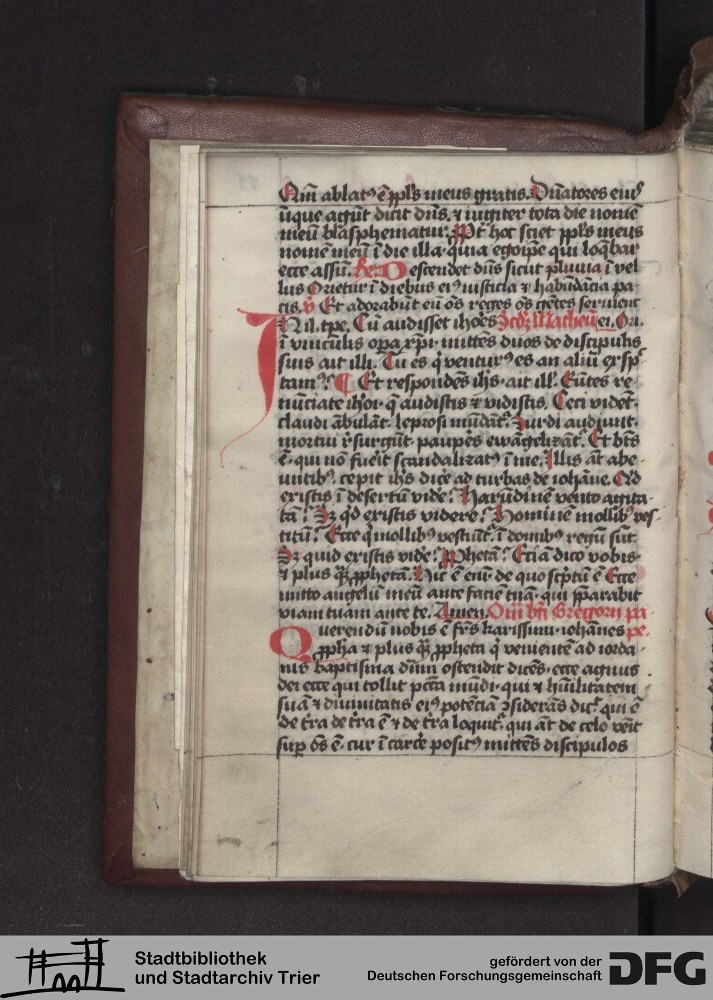 Qm̄ ablatꝰ ē ppl̄s meus gratis. Dn̄atores eiꝰ
īique agūt dicit dn̄s. ⁊ iugiter tota die nomē
meū blasphematur. Ppt̄ hoc sciet ppl̄s meus
nomē meū ī die illa. quia ego ip̄e qui loq̄bar
ecce assū. R̄. Descendet dn̄s sicut pluuia ī vel
lus Orietur ī diebus eiꝰ iusticia ⁊ habūdācia pa
cis. v̄ Et adorabūt eū oēs reges oēs gētes seruient
In il. tp̄e. Cū audisset ioh̄es Scd̄ꝫ Matheū ei. Oī.
ī vinculis opa xp̄i. mittēs duos de discipulis
suis ait illi. Tu es q̄ venturꝰ es an aliū exsp̄c
tamꝰ. Et respondēs ih̄s. ait ill̄. Eūtes re
nūciate ioh̄i. q̄ audistis ⁊ vidistis. Ceci vidēt.
claudi ābulāt. leprosi mūdāt᷑. Surdi audiunt.
mortui r̄surgūt. paupes ewāgelizāt᷑. Et bt̄s
ē. qui nō fueīt scandalizatꝰ ī me. Illis aūt abe
untibꝰ. cepit ih̄s dic̄e ad turbas de iohāne. Qd̄
existis ī desertū vide᷑. Harūdinē vento agita
tā. Sꝫ qd̄ existis videre. Hominē mollibꝰ ves
titū. Ecce q̄ mollibꝰ vestiūt᷑. ī domibꝰ regū sūt.
Sꝫ quid existis vide᷑. Pphetā. Etiā dico vobis
⁊ plus q̄ꝫ pphetā. Hic ē enī. de quo sc̄ptū ē Ecce
mitto angelū meū ante faciē tuā. qui pparabit
viam tuam ante te. Amen. Om̄ bt̄i Gregorij pa
Querendū nobis ē fr̄s karissimi. iohānes pe.
ppha ⁊ plus q̄ꝫ ppheta q̄ venientē ad iorda
nis baptisma dn̄m ostendit dicēs. ecce agnus
dei ecce qui tollit pcc̄a mūdi. qui ⁊ hūilitatem
suā ⁊ diuinitatis eiꝰ potēciā ꝯsiderās dic̄. qui ē
de t̄ra de t̄ra ē ⁊ de t̄ra loquit᷑. qui aūt de celo veīt
sup oēs ē. cur ī carc̄e positꝰ mittēs discipulos
Stadtbibliothek
und Stadtarchiv Trier
gefördert von der
Deutschen Forschungsgemeinschaft
DFG